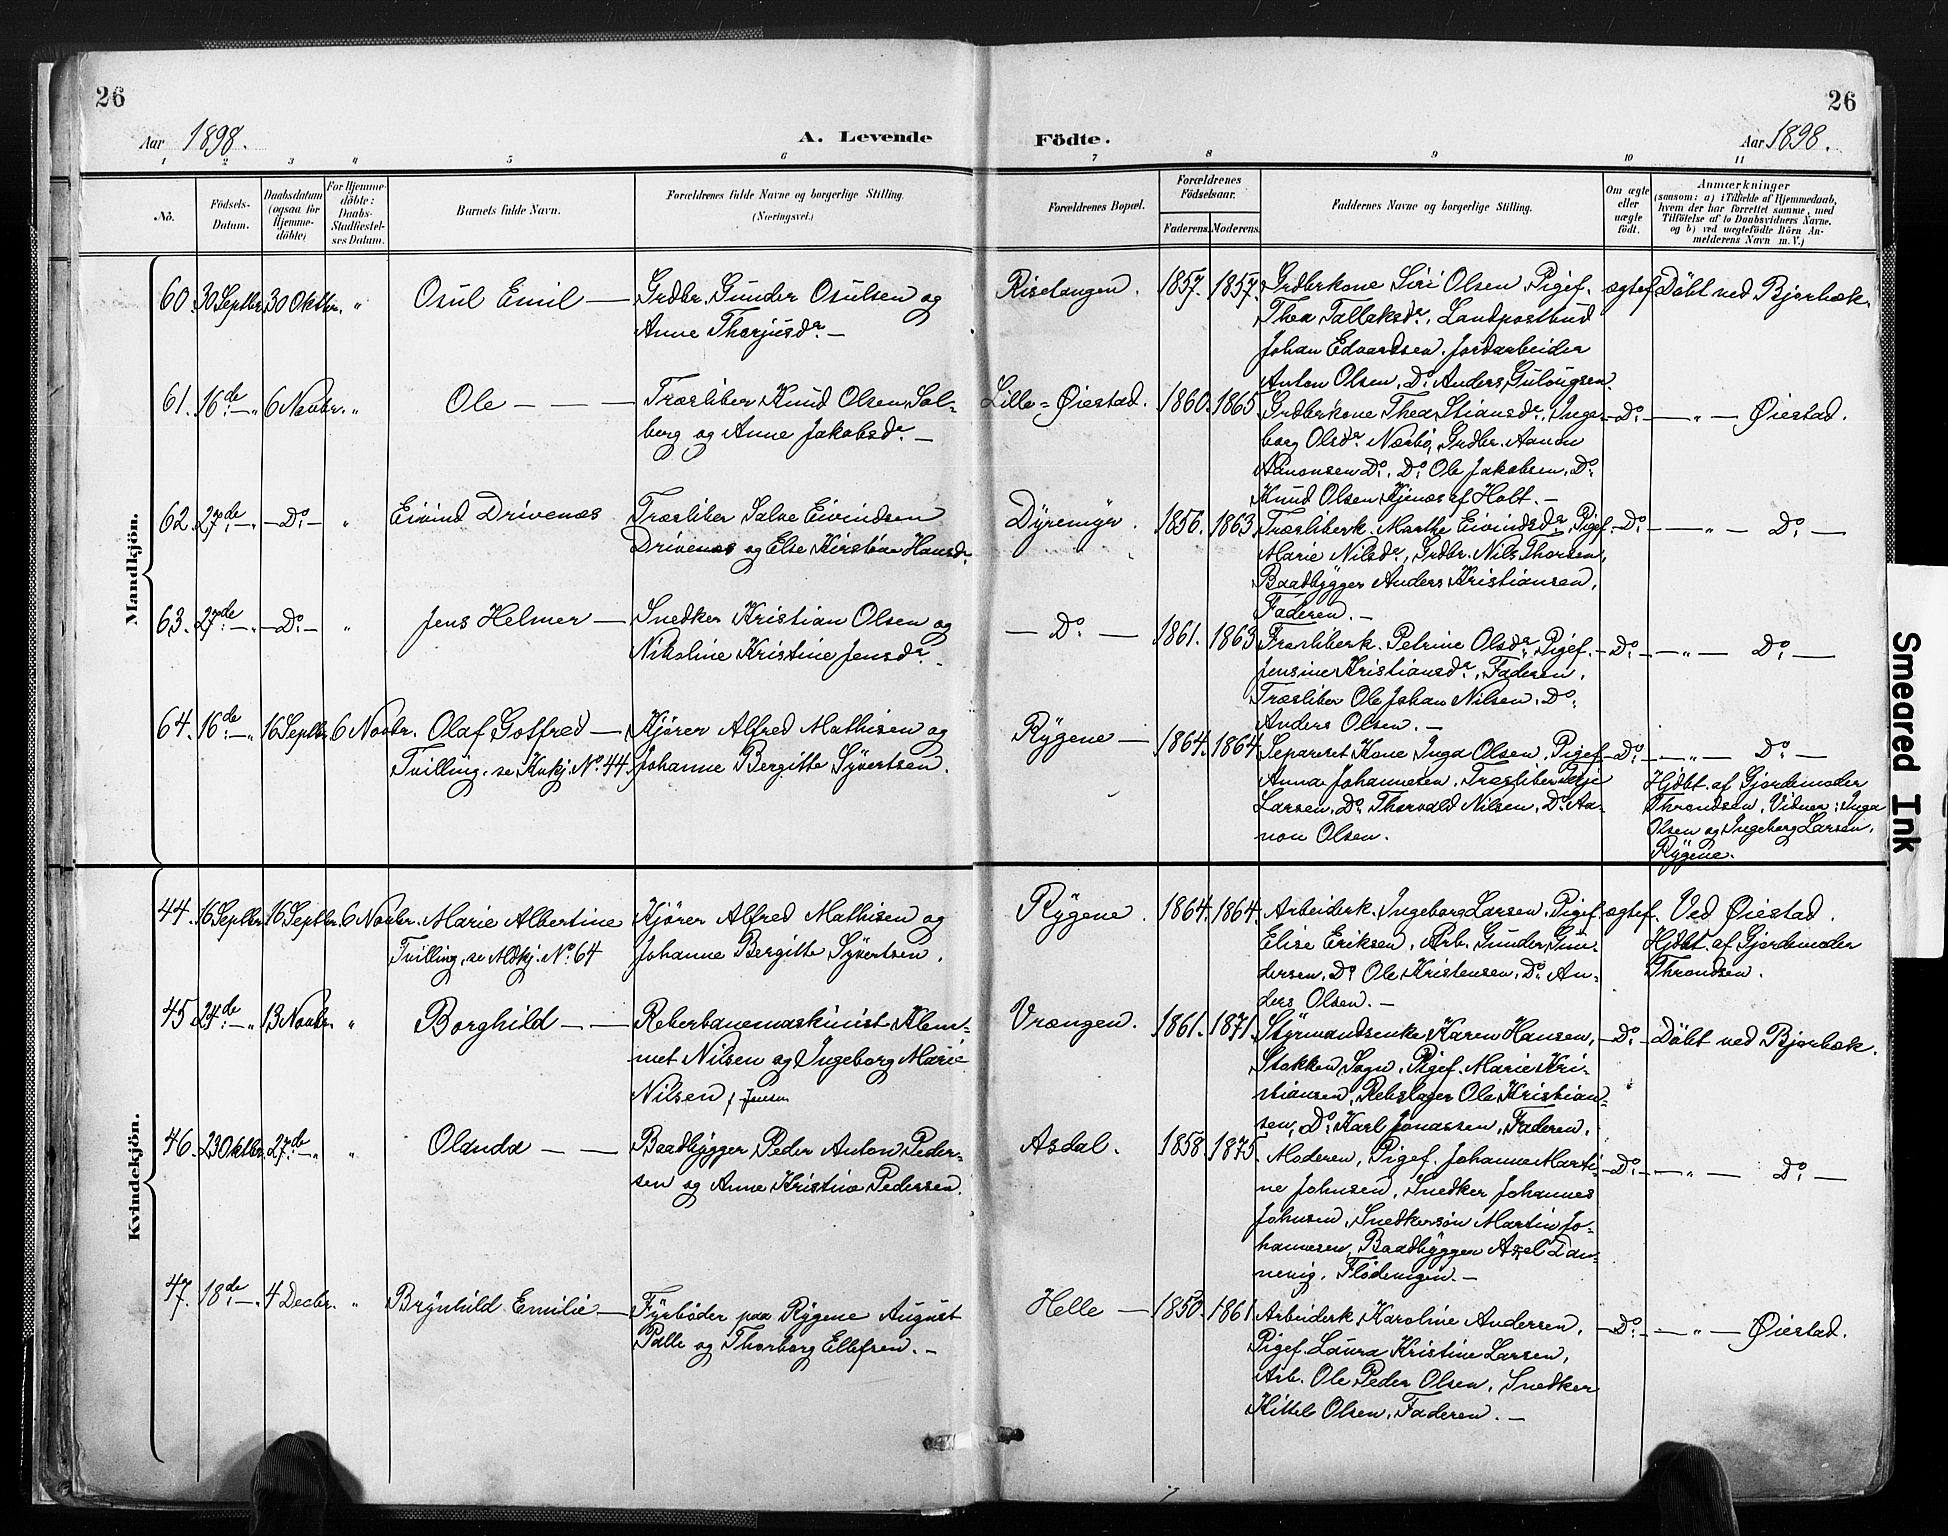 26
26
Aar 1898.
A. Levende Födte.
Aar 1898.
1 2 3 4 5 6 7 8 9 10 11
No.
Födsels-Datum.
Daabsdatum (ogsaa for Hjemme-döbte)
For Hjemme-döbte: Daabs-Stadfæstel-ses Datum.
Barnets fulde Navn.
Forældrenes fulde Navne og borgerlige Stilling.
(Næringsvei.)
Forældrenes Bopæl.
Forældrenes Födselsaar.
Faderens. Moderens.
Faddernes Navne og borgerlige Stilling.
Om ægte eller uægte födt.
Anmærkninger
(saasom: a) i Tilfælde af Hjemmedaab,
hvem der har forrettet samme, med
Tilföielse af to Daabsvidners Navne.
og b) ved uægtefödte Börn An-
melderens Navn m. V.)
Mandkjön.
60. 30 Septbr. 30 Oktbr. " Osul Emil — Grdbr. Gunder Osulsen og
Anne Thorjusdr. —
Risetangen. 1857. 1857. Grdbrkone Siri Olsen, Pigef.
Thea Tallaksdr, Landpostbud
Johan Edvardsen, Jordarbeider
Anton Olsen, Do. Anders Gulougsen.
ægtef. Döbt ved Bjorbæk.
61. 16de — " 6 Novbr. " Ole — — — Træsliber Knud Olsen Sol-
berg og Anne Jakobsdr. —
Lille-Øiestad. 1860. 1865. Grdbrkone Thea Stiansdr, Inge-
borg Olsdr. Næsbö, Grdbr. Aanon
Aanonsen Do., Do. Ole Jakobsen, Do.
Knud Olsen Kjenæs af Holt. —
— Do. — — " — Øiestad.
62. 27de — " — Do. — " Eivind Drivenæs Træsliber Salve Eivindsen
Drivenæs og Else Kirstine Hansdr.
Dÿremÿr. 1856. 1863. Træsliberk. Marthe Eivindsdr, Pigef.
Marie Nilsdr, Grdbr. Nils Thorsen,
Baadbÿgger Anders Kristiansen,
Faderen. —
— Do. — — " — Do. —
63. 27de — " — Do. — " Jens Helmer — Snedker Kristian Olsen og
Nikoline Kristine Jensdr. —
— Do. — 1861. 1863. Træsliberk. Petrine Olsdr, Pigef.
Jensine Kristiansdr, Faderen,
Træsliber Ole Johan Nilsen, Do.
Anders Olsen. —
— Do. — — " — Do. —
64. 16de — " 16 Septbr. 6 Novbr. Olaf Gotfred —
Tvilling, se Kvkj. No. 44.
Kjörer Alfred Mathisen og
Johanne Bergitte Sÿvertsen.
Rÿgene — 1864. 1864. Separeret Kone Inga Olsen, Pigef.
Anna Johannesen, Træsliber Terje
Larsen, Do. Thorvald Nilsen, Do. Aa-
non Olsen.
— Do. — — " — Do. —
Hjdbt. af Gjordemoder
Throndsen, Vidner: Inga
Olsen og Ingeborg Larsen,
Rÿgene.
Kvindekjön.
44. 16 Septbr. 16 Septbr. 6 Novbr. Marie Albertine
Tvilling, se Mdkj. No. 64
Kjörer Alfred Mathisen og
Johanne Bergitte Sÿvertsen.
Rÿgene. 1864. 1864. Arbeiderk. Ingeborg Larsen, Pigef.
Elise Eriksen, Arb. Gunder Gun-
dersen, Do. Ole Kristensen, Do. An-
ders Olsen. —
ægtef. Ved Øiestad.
Hjdbt. af Gjordemoder
Throndsen.
45 24de — " 13 Novbr. " Borghild — — Reberbanemaskinist Klem-
met Nilsen og Ingeborg Marie
Nilsen, f. Jensen
Vrængen. 1861. 1871. Stÿrmandsenke Karen Hansen,
Stokken Sogn, Pigef. Marie Kri-
stiansen, Rebslager Ole Kristian-
sen, Do. Karl Jonassen, Faderen.
— Do. — Döbt ved Bjorbæk.
46. 23 Oktbr. 27de — " " Olanda — — Baadbÿgger Peder Anton Peder-
sen og Anne Kristine Pedersen.
Asdal. 1858. 1875. Moderen, Pigef. Johanne Marti-
ne Johnsen, Snedker Johannes
Johnsen, Snedkersön Martin Jo-
hannesen, Baadbÿgger Axel Dan-
nevig, Flödevigen. —
— Do. — — " — Do. —
47. 18de — " 4 Decbr. " Brÿnhild Emilie — Fÿrböder paa Rÿgene August
Palle og Thorborg Ellefsen. —
Helle — 1850. 1861. Arbeiderk. Karoline Andersen,
Pigef. Laura Kristine Larsen,
Arb. Ole Peder Olsen, Snedker
Kittel Olsen, Faderen. —
— Do. — — " — Øiestad.
Smeared Ink